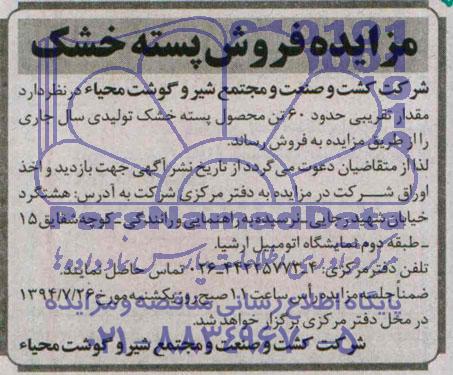 مزایده فروش پسته خشک
شرکت کشت و صنعت و مجتمع شیر و گوشت محیاء در نظر دارد
مقدار تقریبی حدود ۶۰ تن محصول پسته خشک تولیدی سال جاری
را از طریق مزایده به فروش رساند.
لذا از متقاضیان دعوت می گردد از تاریخ نشر آگهی جهت بازدید و اخذ
اوراق شرکت در مزایده به دفتر مرکزی شرکت به آدرس: هشتگرد
خیابان شهید رجایی - نرسیده به راهنمایی و رانندگی - کوچه شقایق ۱۵
- طبقه دوم نمایشگاه اتومبیل ارشیا.
تلفن دفتر مرکزی: ۰۲۶-۴۴۲۲۵۷۷۳۴ تماس حاصل نمایند.
ضمناً جلسه مزایده رأس ساعت ۱۱ صبح روز یکشنبه مورخ ۱۳۹۴/۷/۲۶
در محل دفتر مرکزی برگزار خواهد شد.
شرکت کشت و صنعت و مجتمع شیر و گوشت محیاء
ParsNamadData
پایگاه اطلاع رسانی مناقصه و مزایده
۰۲۱-۸۸۳۴۹۶۷۰-۵